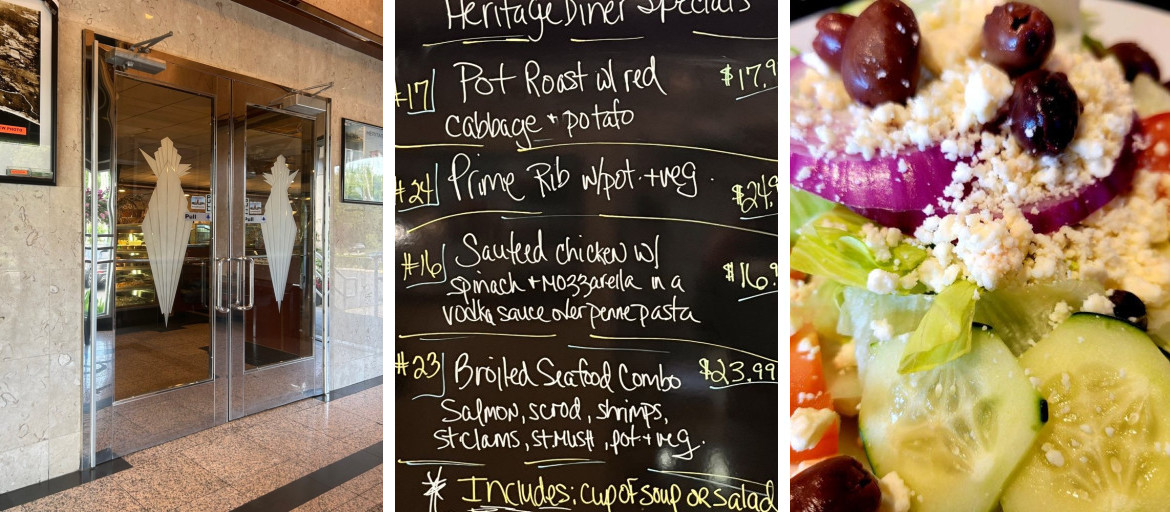 W PHOTO
Pull
Pull
Heritage Diner Specials
#17 Pot Roast w/ red $17.9
cabbage + potato
#24 Prime Rib w/pot. + veg. $24.9
#16 Sauteed chicken w/ $16.9
spinach + mozzarella in a
vodka sauce over penne pasta
#23 Broiled Seafood Combo $23.99
Salmon, scrod, shrimps,
st clams, st mush, pot + veg.
* Includes: cup of soup or salad